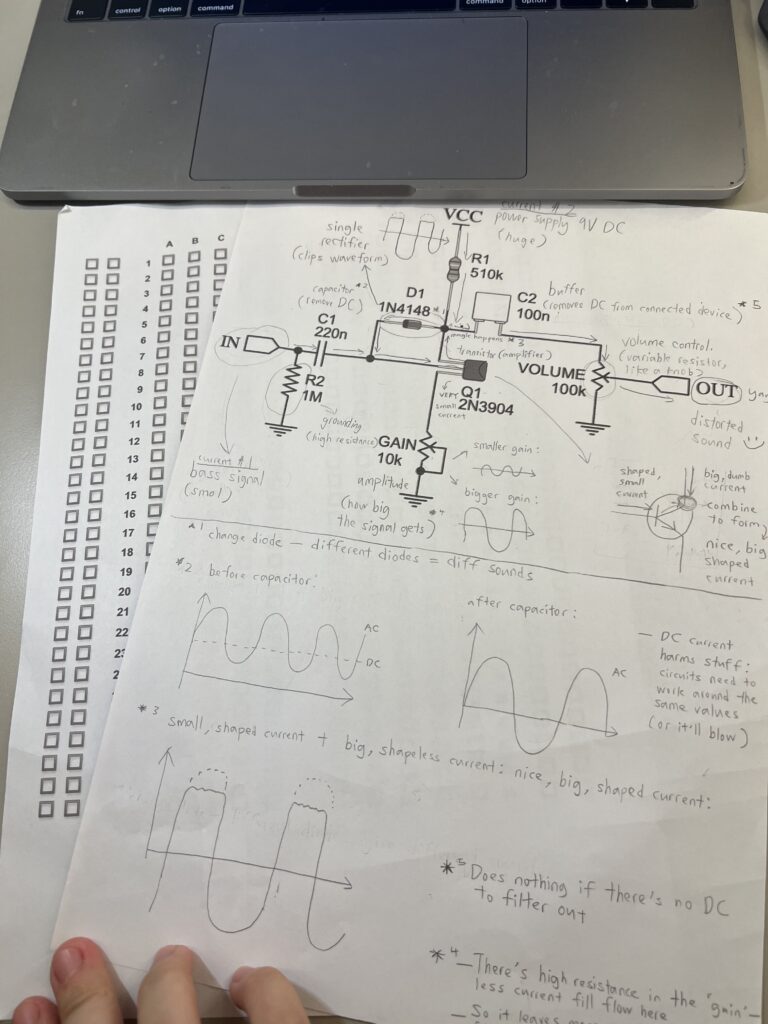 fn
control
option
command
command
option
A
B
C
1
2
3
4
5
6
7
8
9
10
11
12
13
14
15
16
17
18
19
20
21
22
23
current #2
power supply 9V DC
(huge)
VCC
single
rectifier
(clips waveform)
R1
510k
capacitor *2
(remove DC)
D1
1N4148 *1
C2
100n
buffer
(removes DC from connected device) *5
C1
220n
magic happens *3
transistor (amplifier)
IN
volume control.
(variable resistor,
like a knob)
VOLUME
100k
OUT
yay
R2
1M
Q1
2N3904
very
small
current
distorted
sound
grounding
(high resistance)
GAIN
10k
smaller gain:
current #1
bass signal
(smol)
amplitude
(how big
the signal gets) *4
bigger gain:
shaped,
small
current
big, dumb
current
combine
to form,
nice, big
shaped
current
*1 change diode — different diodes = diff sounds
*2 before capacitor:
AC
DC
after capacitor:
AC
— DC current
harms stuff:
circuits need to
work around the
same values
(or it'll blow)
*3 small, shaped current + big, shapeless current: nice, big, shaped current:
*5 Does nothing if there's no DC
to filter out
*4 — There's high resistance in the 'gain' —
less current fill flow here
— So it leaves